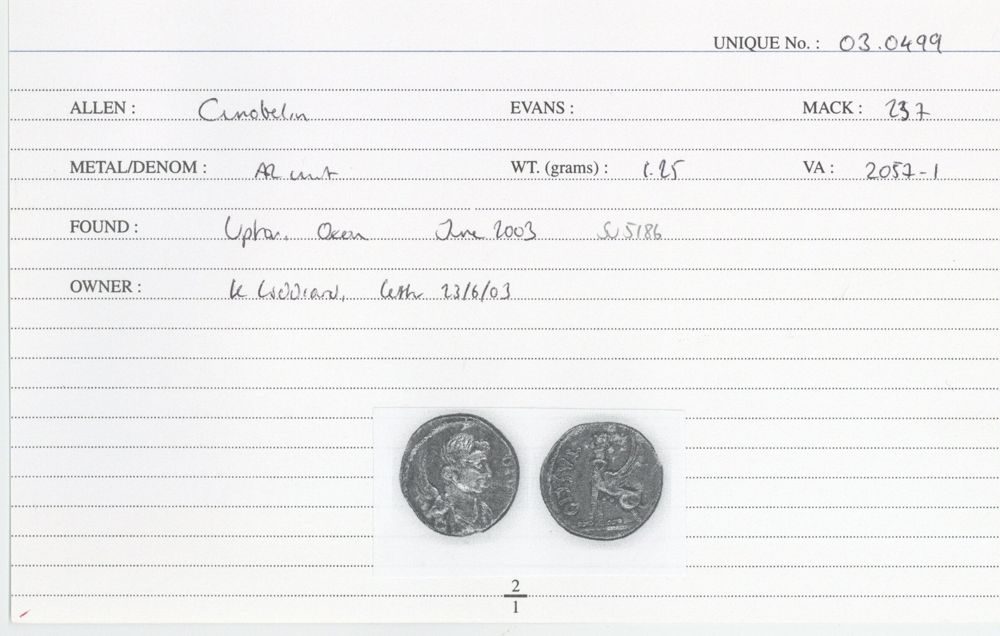 UNIQUE No. : 03.0499
ALLEN : Cunobelin EVANS : MACK : 237
METAL/DENOM : AR unit WT. (grams) : 1.25 VA : 2057-1
FOUND : June 2003 SU 5186
OWNER : 23/6/03
2
1